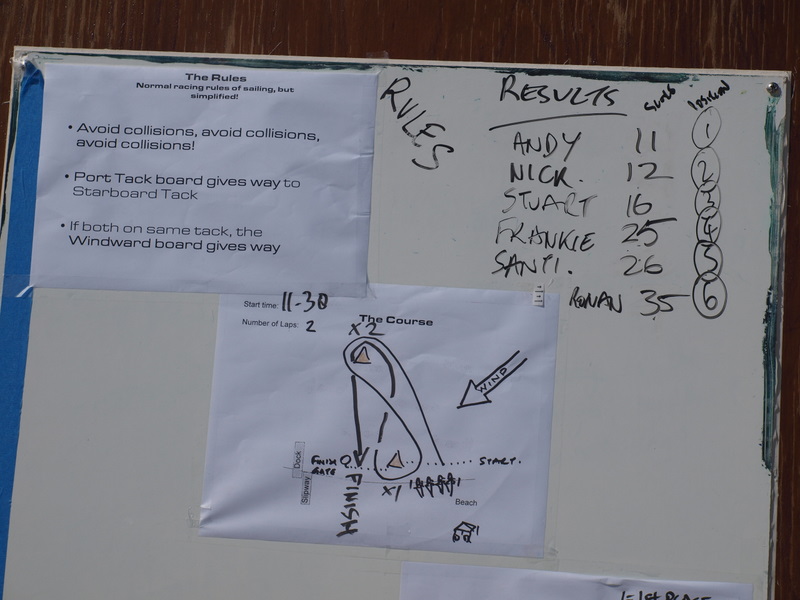 The Rules
Normal racing rules of sailing, but
simplified!
• Avoid collisions, avoid collisions,
avoid collisions!
• Port Tack board gives way to
Starboard Tack
• If both on same tack, the
Windward board gives way
RULES
RESULTS
POSITION
ANDY 11 1
NICK. 12 2
STUART 16 3
FRANKIE 25 4
SANTI. 26 5
RONAN 35 6
Start time: 11-30
Number of Laps: 2
The Course
X2
WIND
Dock
Slipway
FINISH
GATE
START.
X1
FINISH
Beach
1=1st PLACE